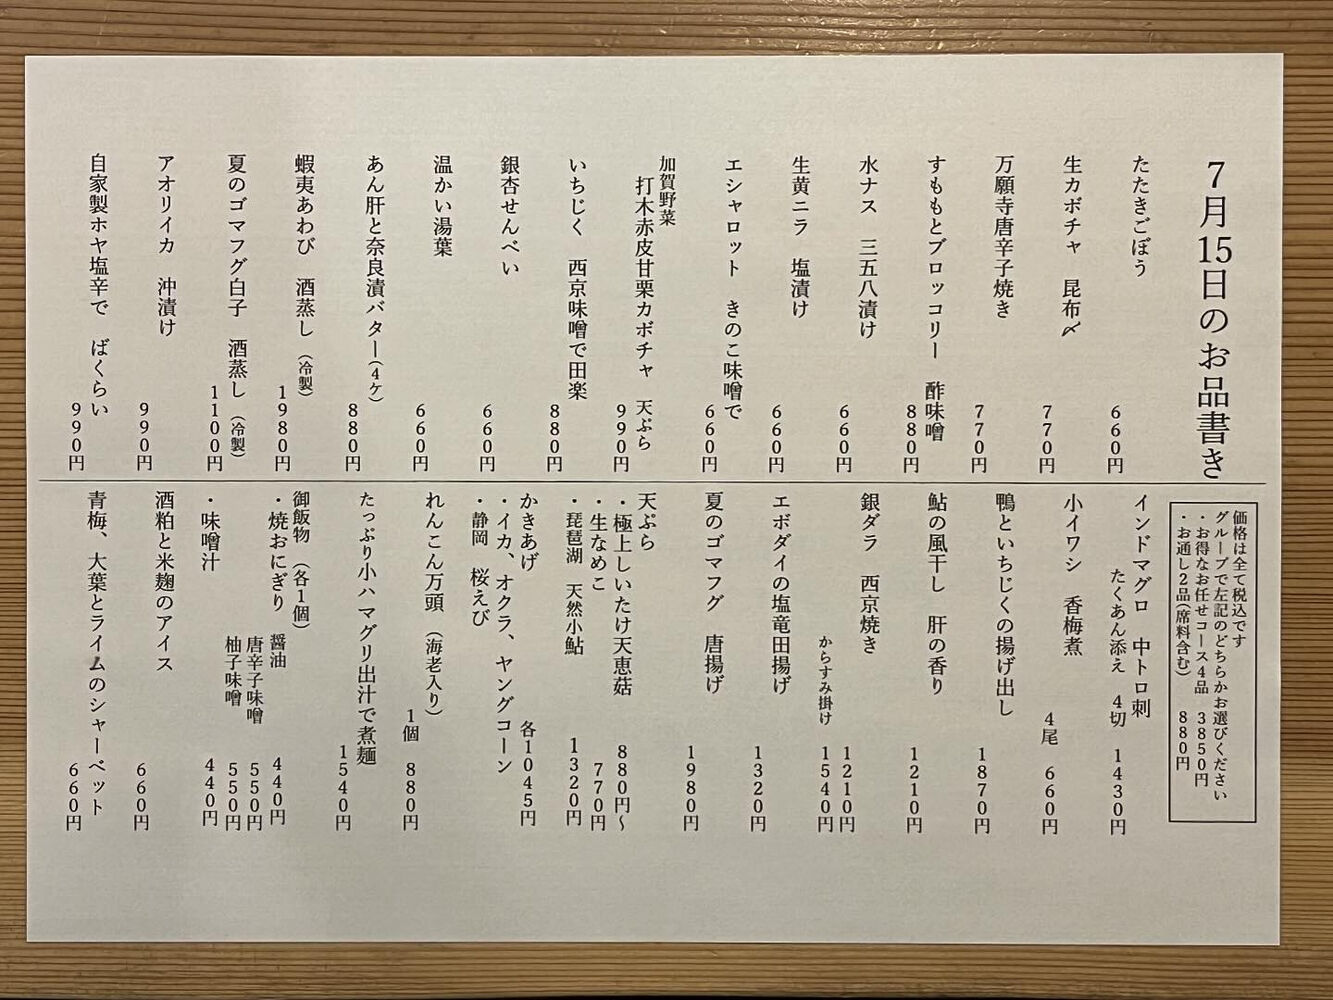 7月15日のお品書き
たたきごぼう 660円
生カボチャ 昆布〆 770円
万願寺唐辛子焼き 770円
すももとブロッコリー 酢味噌 880円
水ナス 三五八漬け 660円
生黄ニラ 塩漬け 660円
エシャロット きのこ味噌で 660円
加賀野菜
打木赤皮甘栗カボチャ 天ぷら 990円
いちじく 西京味噌で田楽 880円
銀杏せんべい 660円
温かい湯葉 660円
あん肝と奈良漬バター(4ケ) 880円
蝦夷あわび 酒蒸し(冷製) 1980円
夏のゴマフグ白子 酒蒸し(冷製) 1100円
アオリイカ 沖漬け 990円
自家製ホヤ塩辛で ばくらい 990円
価格は全て税込です
グループで左記のどちらかお選びください
・お得なお任せコース4品 3850円
・お通し2品(席料含む) 880円
インドマグロ 中トロ刺
たくあん添え 4切 1430円
小イワシ 香梅煮
4尾 660円
鴨といちじくの揚げ出し 1870円
鮎の風干し 肝の香り 1210円
銀ダラ 西京焼き 1210円
からすみ掛け 1540円
エボダイの塩竜田揚げ 1320円
夏のゴマフグ 唐揚げ 1980円
天ぷら
・極上しいたけ天恵菇 880円〜
・生なめこ 770円
・琵琶湖 天然小鮎 1320円
かきあげ 各1045円
・イカ、オクラ、ヤングコーン
・静岡 桜えび
れんこん万頭(海老入り)
1個 880円
たっぷり小ハマグリ出汁で煮麺 1540円
御飯物(各1個)
・焼おにぎり 醤油 440円
唐辛子味噌 550円
柚子味噌 550円
・味噌汁 440円
酒粕と米麹のアイス 660円
青梅、大葉とライムのシャーベット 660円